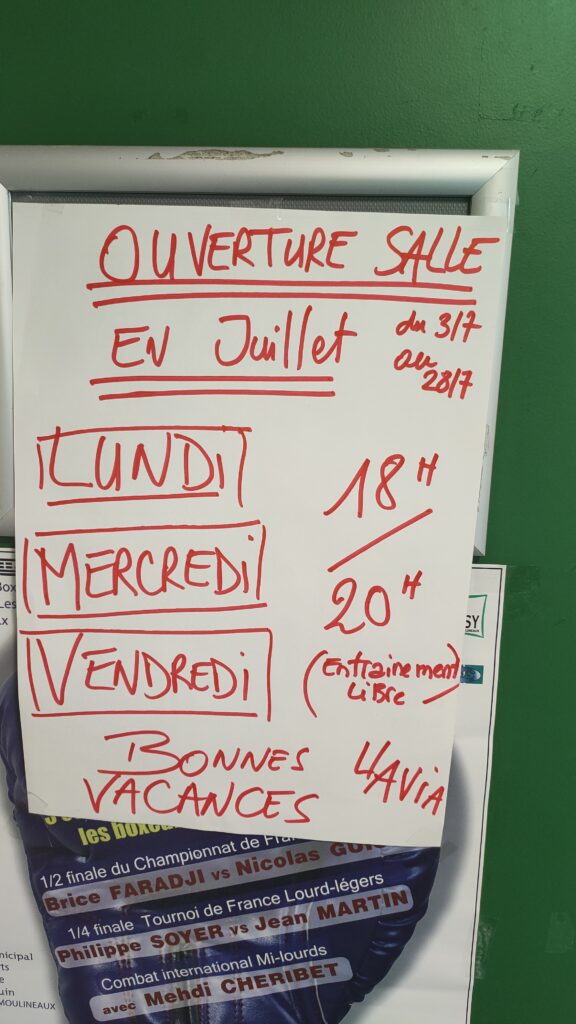 OUVERTURE SALLE
EN Juillet
du 3/7
au
28/7
LUNDI
MERCREDI
VENDREDI
18H
20H
(Entrainement
Libre)
BONNES
VACANCES
les boxeu
1/2 finale du Championnat de Fra
Brice FARADJI vs Nicolas
1/4 finale Tournoi de France Lourd-légers
Philippe SOYER vs Jean MARTIN
Combat international Mi-lourds
avec Mehdi CHERIBET
Box
Les
SY
nicipal
rts
e
uin
MOULINEAUX